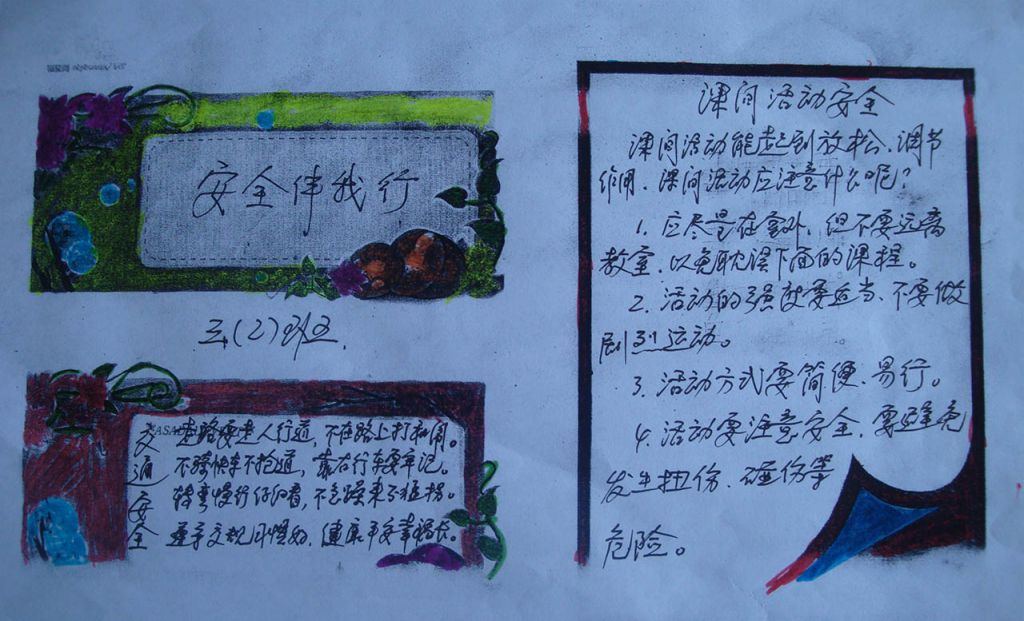 安全伴我行
三(2)班.
交通安全
走路要走人行道,不在路上打和闹。
不骑快车不抢道,靠右行车要牢记。
转弯慢行仔细看,不急躁来不猛拐。
遵守交规习惯好,健康平安幸福长。
课间活动安全
课间活动能起到放松、调节
作用、课间活动应注意什么呢?
1. 应尽量在室外,但不要远离
教室,以免耽误下面的课程。
2. 活动的强度要适当、不要做
剧烈运动。
3. 活动方式要简便、易行。
4. 活动要注意安全、要避免
发生扭伤、碰伤等
危险。